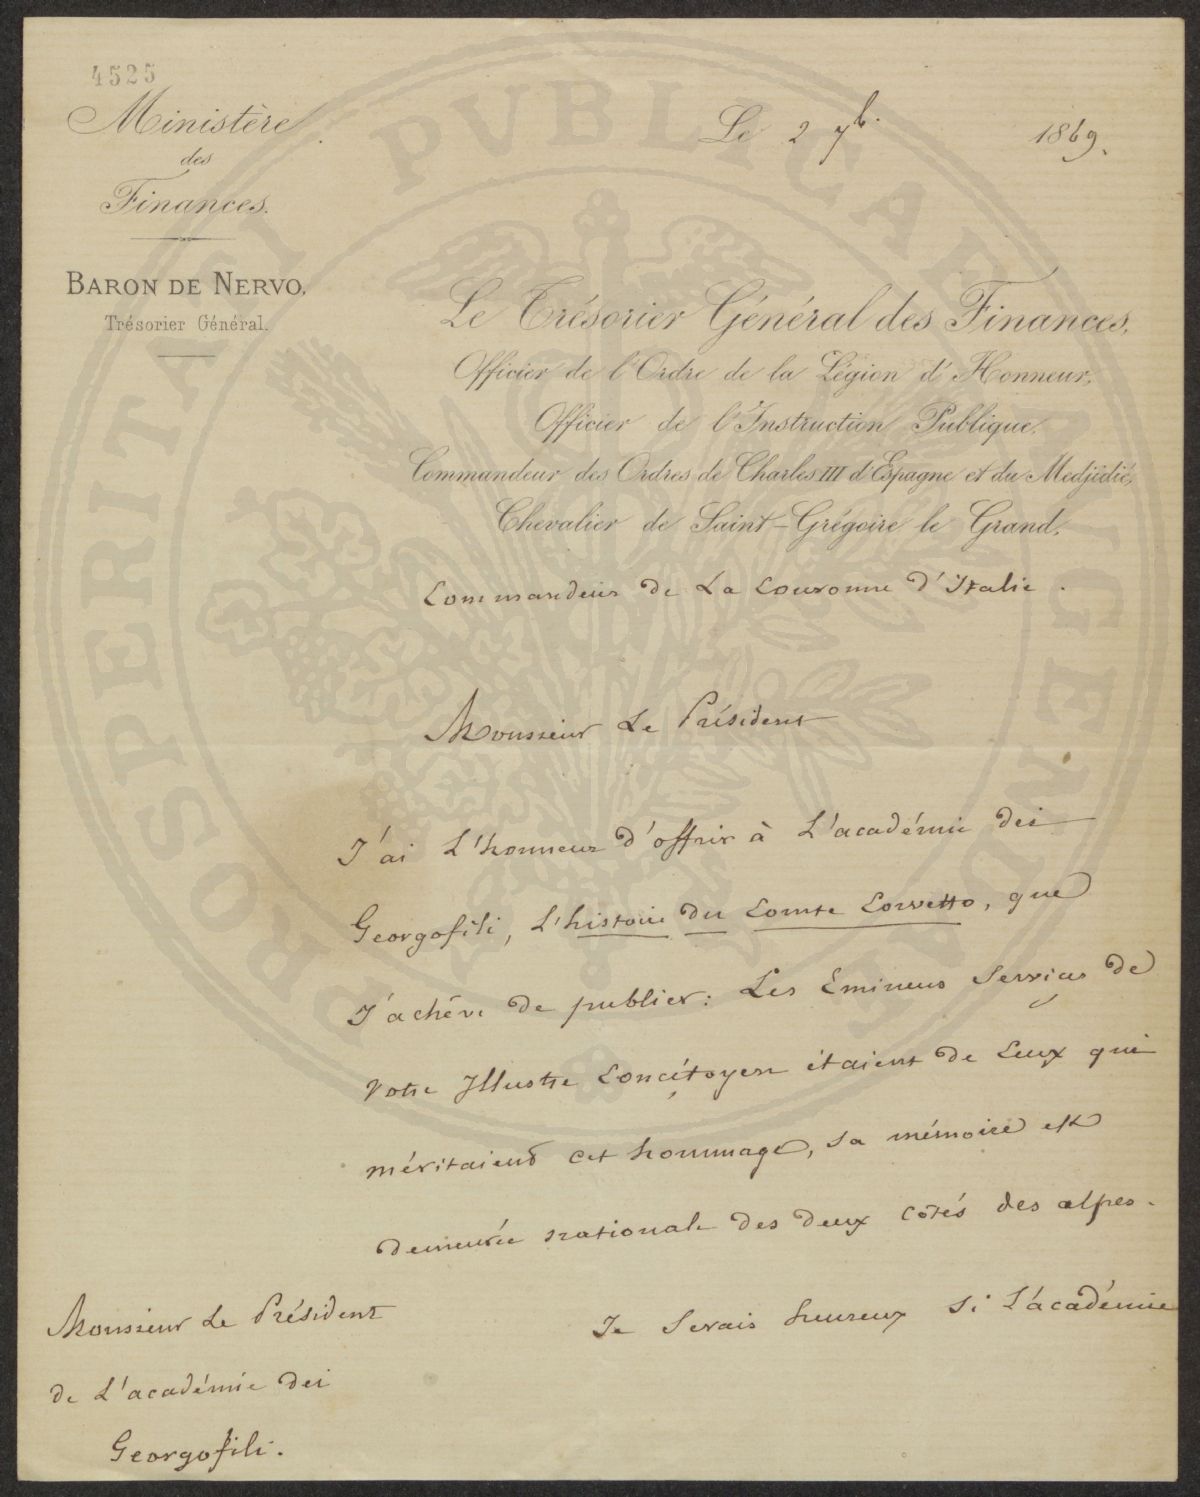 4525
Ministère
des
Finances.
BARON DE NERVO,
Trésorier Général.
Le 2 7b. 1869.
Le Trésorier Général des Finances,
Officier de l'Ordre de la Légion d'Honneur,
Officier de l'Instruction Publique.
Commandeur des Ordres de Charles III d'Espagne et du Medjidié,
Chevalier de Saint-Grégoire le Grand,
Commandeur de La Couronne d'Italie.
Monsieur Le Président
J'ai L'honneur d'offrir à L'académie dei
Georgofili, L'histoire du Comte Corvetto, que
J'achève de publier: Les Eminens Services de
Votre Illustre Concitoyen étaient de Ceux qui
méritaient cet hommage, Sa mémoire est
demeurée nationale des deux côtés des alpes.
Je Serais heureux Si L'académie
Monsieur Le Président
de L'académie dei
Georgofili.
PROSPERITATI PVBLICAE AVGENDAE